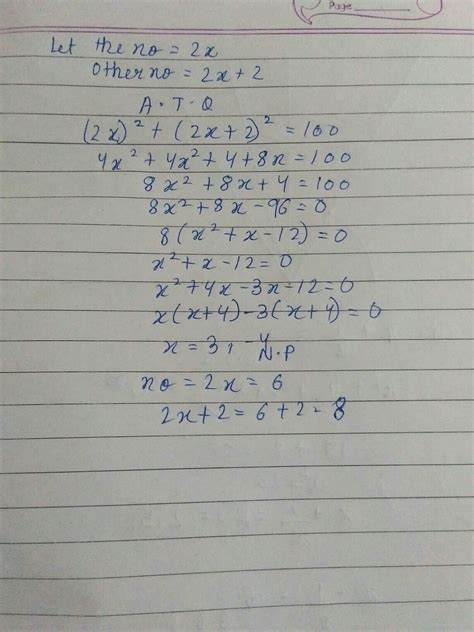 Page
Let the no = 2x
Other no = 2x + 2
A.T.Q
(2x)² + (2x+2)² = 100
4x² + 4x² + 4 + 8x = 100
8x² + 8x + 4 = 100
8x² + 8x - 96 = 0
8(x² + x - 12) = 0
x² + x - 12 = 0
x² + 4x - 3x - 12 = 0
x(x+4) - 3(x+4) = 0
x = 3, -4
N.P
no = 2x = 6
2x + 2 = 6 + 2 = 8